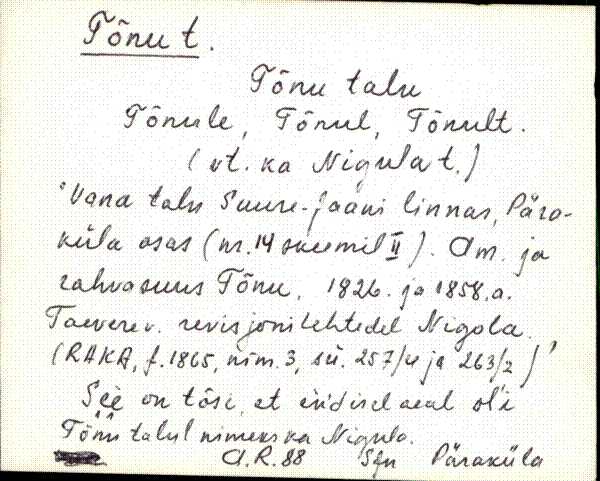 Tõnu t.
Tõnu talu
Tõnule, Tõnul, Tõnult.
(vt. ka Nigula t.)
"Vana talu Suure-Jaani linnas, Pära-
küla osas (nr. 14 skeemil II). Am. ja
rahvasuus Tõnu, 1826. ja 1858. a.
Taeverev. revisjonilehtedel Nigola.
(RAKA, f. 1865, nim. 3, sü. 257/4 ja 263/2)"
See on tõsi, et endisel aeal ol'i
Tõnu talul nimeks ka Nigula.
A.R. 88 SJn Päraküla